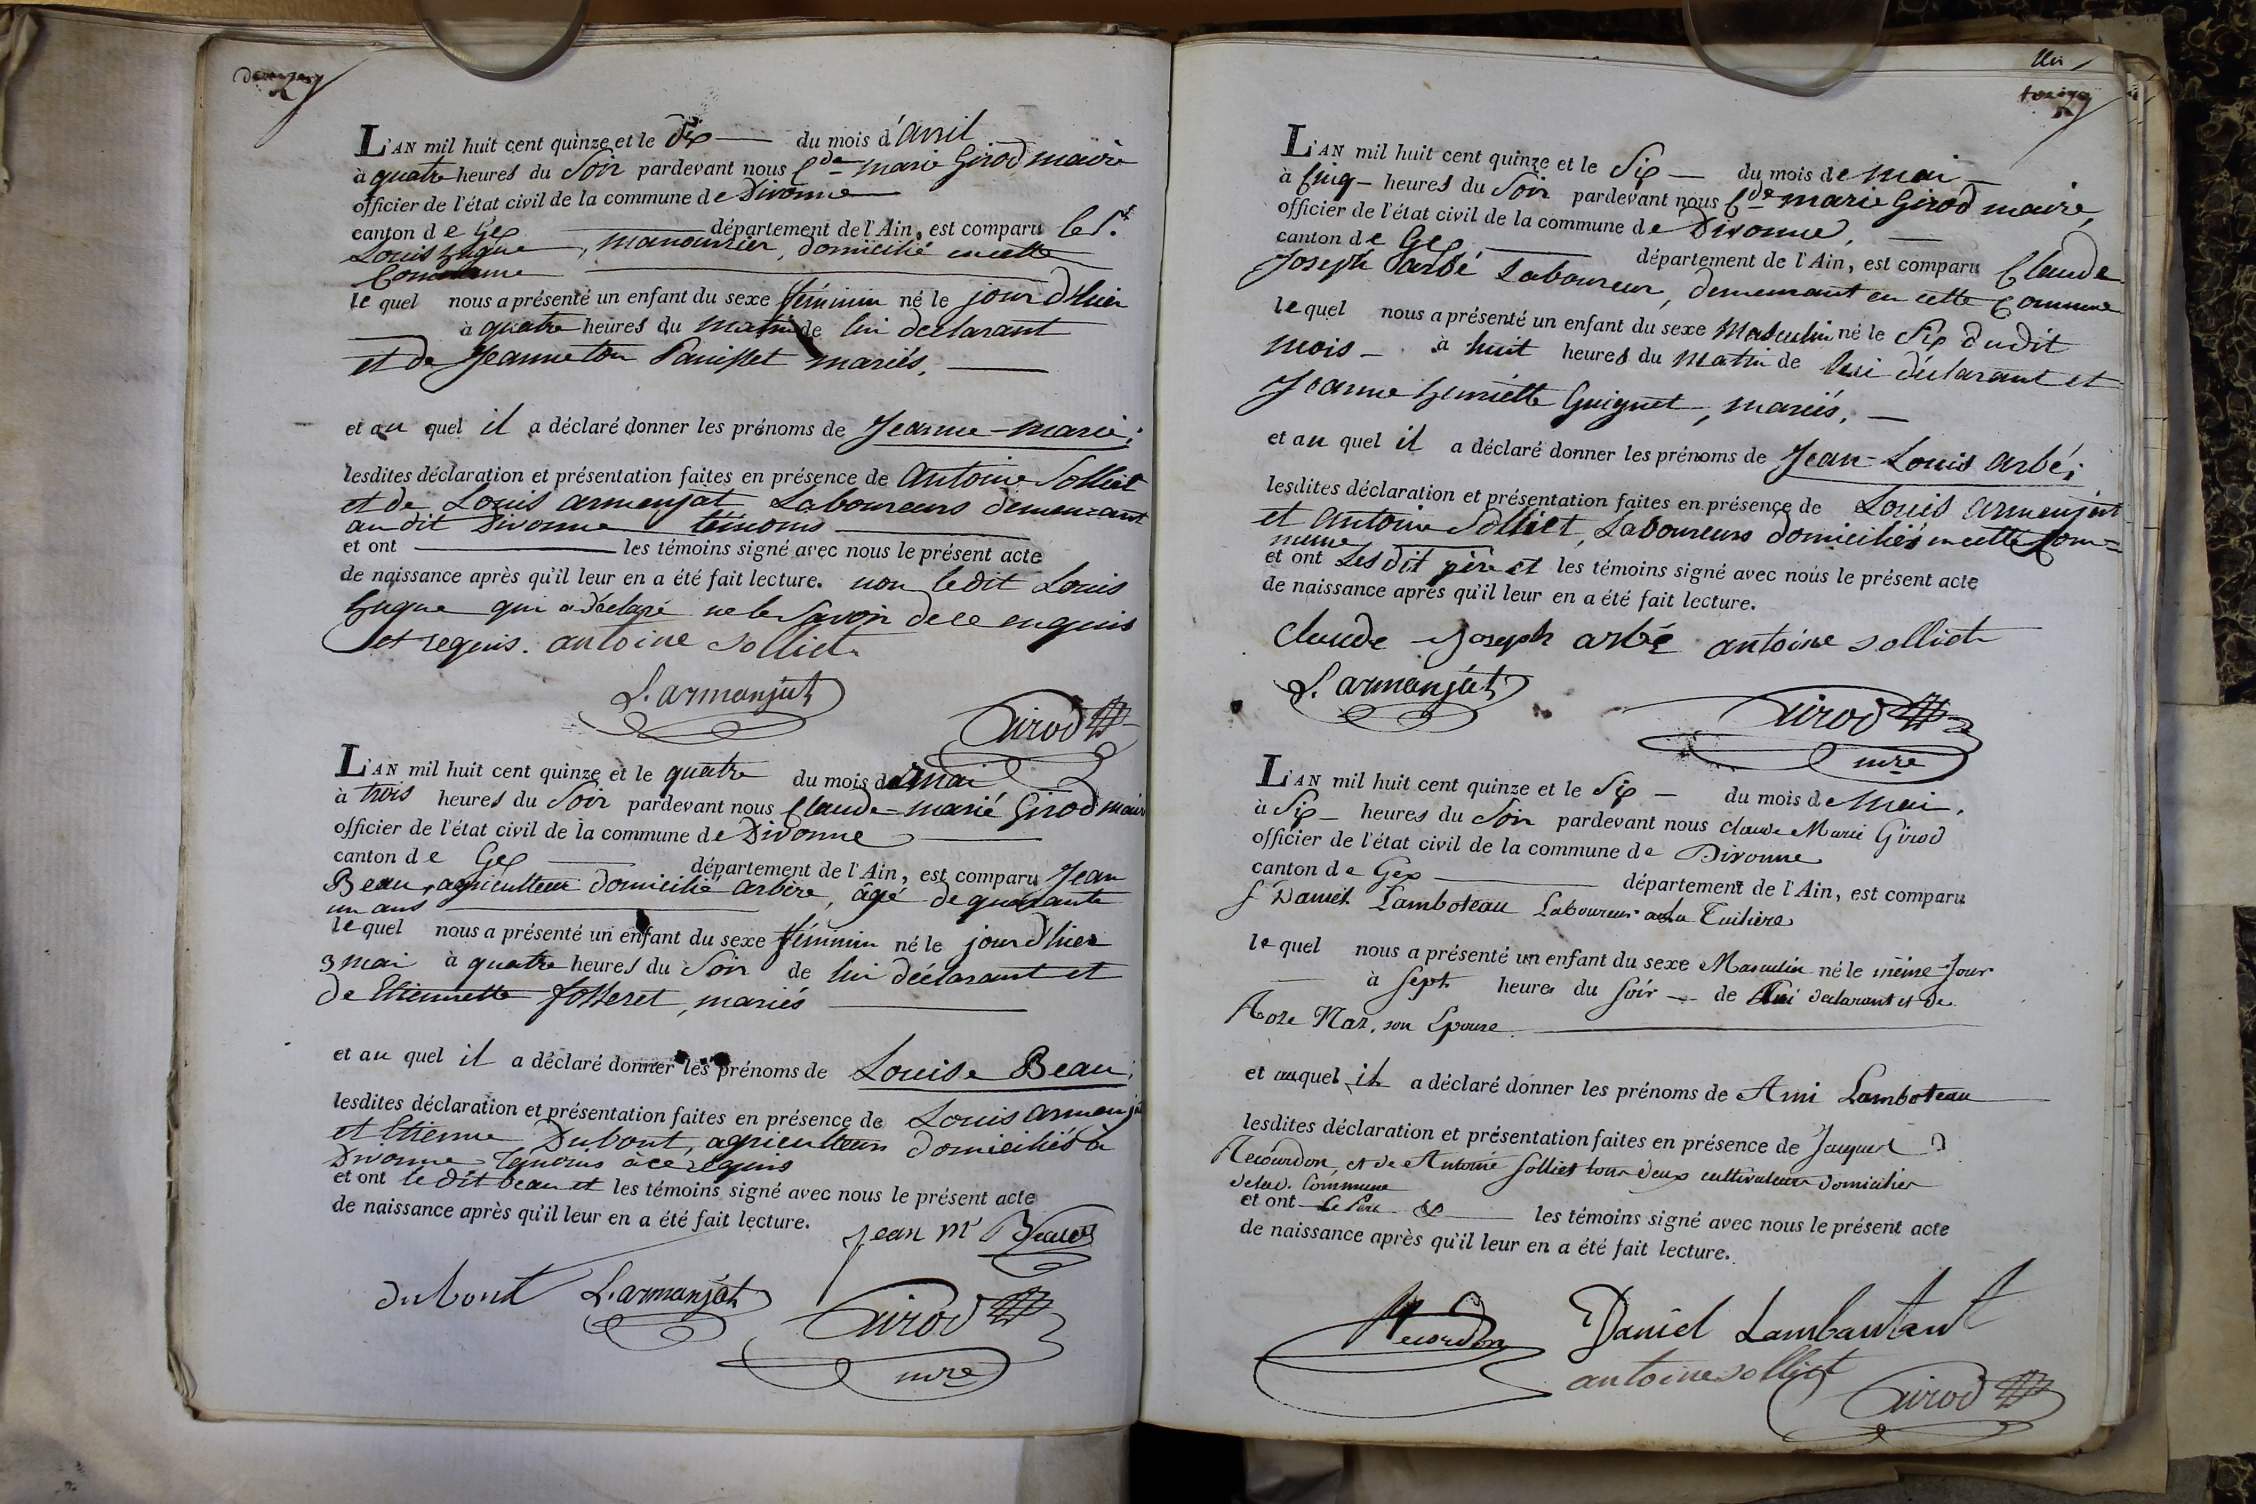 L'AN mil huit cent quinze et le dix du mois d'avril
à quatre heures du Soir pardevant nous Cde marie Girod maire
officier de l'état civil de la commune de Divonne
canton de Gex département de l'Ain, est comparu le Sr
Louis hugue, manouvrier, domicilié en cette
Commune
lequel nous a présenté un enfant du sexe féminin né le jour d'hier
à quatre heures du matin de lui declarant
et de Jeanneton Panisset mariés.
et au quel il a déclaré donner les prénoms de Jeanne-marie;
lesdites déclaration et présentation faites en présence de Antoine Solliet
et de Louis armenjat Laboureurs demeurant
au dit Divonne témoins
et ont les témoins signé avec nous le présent acte
de naissance après qu'il leur en a été fait lecture. non ledit Louis
hugue qui a déclaré ne le Savoir de ce enquis
et requis. antoine solliet
L. armanjat
Girod
L'AN mil huit cent quinze et le quatre du mois de mai
à trois heures du Soir pardevant nous Claude-marié Girod maire
officier de l'état civil de la commune de Divonne
canton de Gex département de l'Ain, est comparu Jean
Beau, agriculteur domicilié arbère, âgé de quarante
un ans
lequel nous a présenté un enfant du sexe féminin né le jour d'hier
3 mai à quatre heures du Soir de lui déclarant et
de Etiennette Josseret, mariés
et au quel il a déclaré donner les prénoms de Louise Beau;
lesdites déclaration et présentation faites en présence de Louis armenja
et Etienne Dubout, agriculteurs domiciliés à
Divonne Témoins à ce requis
et ont le dit beau et les témoins signé avec nous le présent acte
de naissance après qu'il leur en a été fait lecture.
jean m Beau
dubout L. armanjat
Girod
mre
L'AN mil huit cent quinze et le Six du mois de mai
à Cinq heures du Soir pardevant nous Cde marie Girod maire,
officier de l'état civil de la commune de Divonne,
canton de Gex département de l'Ain, est comparu Claude
Joseph arbé Laboureur, demeurant en cette Commune
lequel nous a présenté un enfant du sexe Masculin né le Six dudit
mois à huit heures du matin de lui déclarant et
Jeanne henriette Guignet, mariés.
et au quel il a déclaré donner les prénoms de Jean-Louis arbé;
lesdites déclaration et présentation faites en présence de Louis armenjat
et Antoine Solliet, Laboureurs domiciliés en cette Com=
mune
et ont Les dit père et les témoins signé avec nous le présent acte
de naissance après qu'il leur en a été fait lecture.
claude joseph arbé antoine solliet
L. armanjat
Girod
mre
L'AN mil huit cent quinze et le Six du mois de Mai,
à Six heures du Soir pardevant nous Claude Marie Girod
officier de l'état civil de la commune de Divonne
canton de Gex département de l'Ain, est comparu
Sr Daniel Lamboteau Laboureur a la Tuilière
lequel nous a présenté un enfant du sexe Masculin né le même Jour
à Sept heures du soir de lui declarant et de
son Epouse
et auquel il a déclaré donner les prénoms de Ami Lamboteau
lesdites déclaration et présentation faites en présence de Jaques
Recourdon, et de Antoine Solliet tous deux cultivateurs domiciliés
de lad. Commune
et ont Le Père & les témoins signé avec nous le présent acte
de naissance après qu'il leur en a été fait lecture.
Recordon Daniel Lambautaut
antoine solliet
Girod